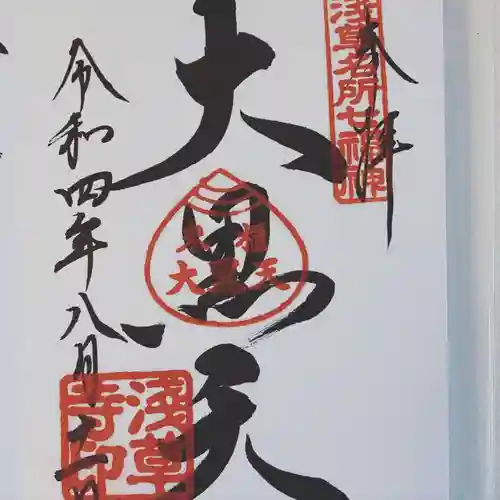 奉拝
浅草名所七福神
大黒天
大黒天
令和四年八月
浅草
寺印